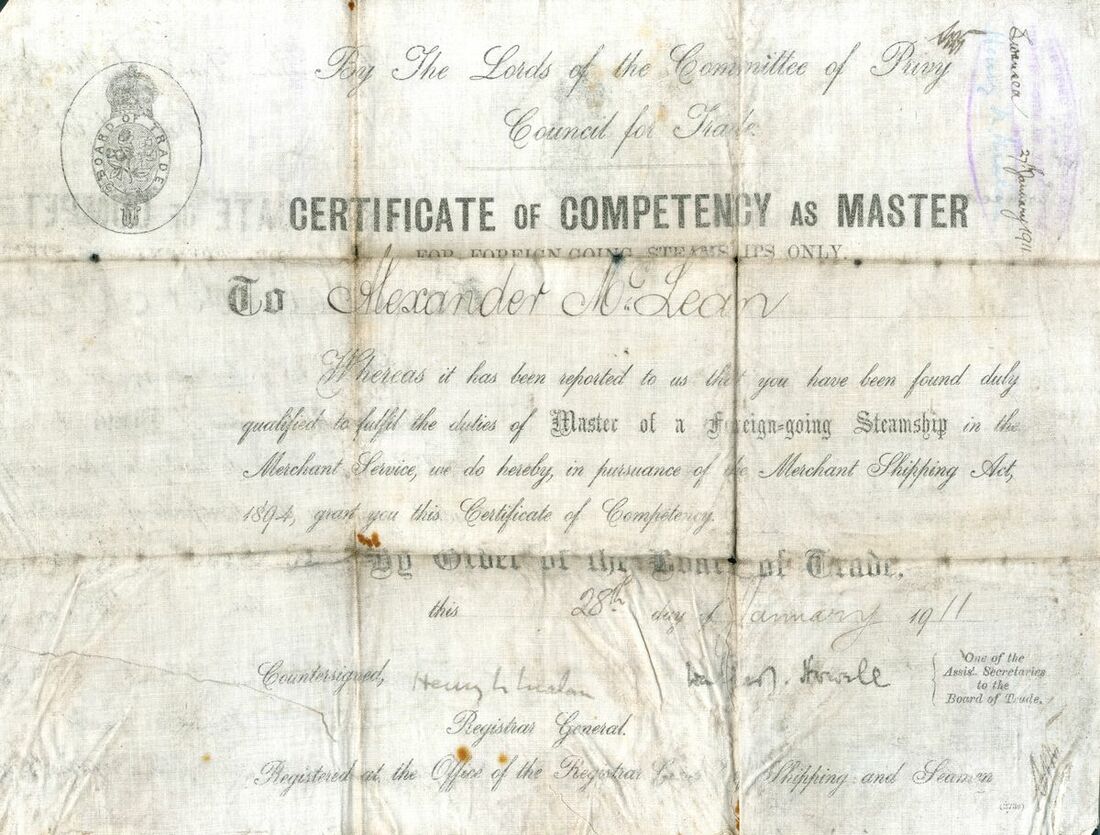 By The Lords of the Committee of Privy
Council for Trade.
BOARD OF TRADE
Swansea
27 January 1911
CERTIFICATE OF COMPETENCY AS MASTER
FOR FOREIGN-GOING STEAMSHIPS ONLY.
To Alexander McLean
Whereas it has been reported to us that you have been found duly
qualified to fulfil the duties of Master of a Foreign-going Steamship in the
Merchant Service, we do hereby, in pursuance of the Merchant Shipping Act,
1894, grant you this Certificate of Competency.
By Order of the Board of Trade,
this 28th day of January 1911
Countersigned,
Walter J. Howell
One of the
Assist. Secretaries
to the
Board of Trade.
Registrar General.
Registered at the Office of the Registrar General of Shipping and Seamen